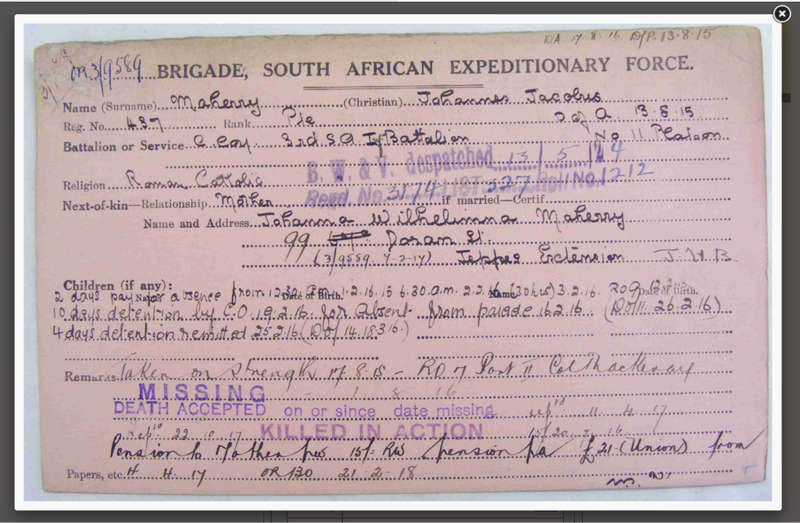 DA 17.8.16 D/P. 13.8.15
OR 3/9589 BRIGADE, SOUTH AFRICAN EXPEDITIONARY FORCE.
Name (Surname) Maherry (Christian) Johannes Jacobus
Reg. No. 437 Rank Pte D of A 13.8.15
Battalion or Service C Coy. 3rd S A If Battalion No 11 Platoon
B. W. & V. despatched 13/5/24
Religion Roman Catholic Recd. No. 3174 LIST 227 Roll No. 1212
Next-of-kin—Relationship Mother if married—Certif.
Name and Address Johanna Wilhelmina Maherry
99 Doran St.
(3/9589 7-2-17) Jeppes Extension J.H.B
Children (if any):
Name Date of Birth. Name Date of Birth.
2 days pay for absence from 12.30 P.M. 1.2.16 to 6.30 a.m. 2.2.16 (30 hrs) 3.2.16
10 days detention by C.O. 19.2.16 for Absent from parade 16.2.16 (DO 11. 26.2.16)
4 days detention remitted 25.2.16 (DO 14. 18.3.16)
Remarks Taken on strength 17.8.15 — RO 7 Part II Col Thackeray
MISSING - 1 8 16
DEATH ACCEPTED on or since date missing. 11 4 17
22 10 17 KILLED IN ACTION 15/20.7.16
Pension to Mother pension pa £21 (Union) from
Papers, etc. H 4. 17 OR 130 21-2-18